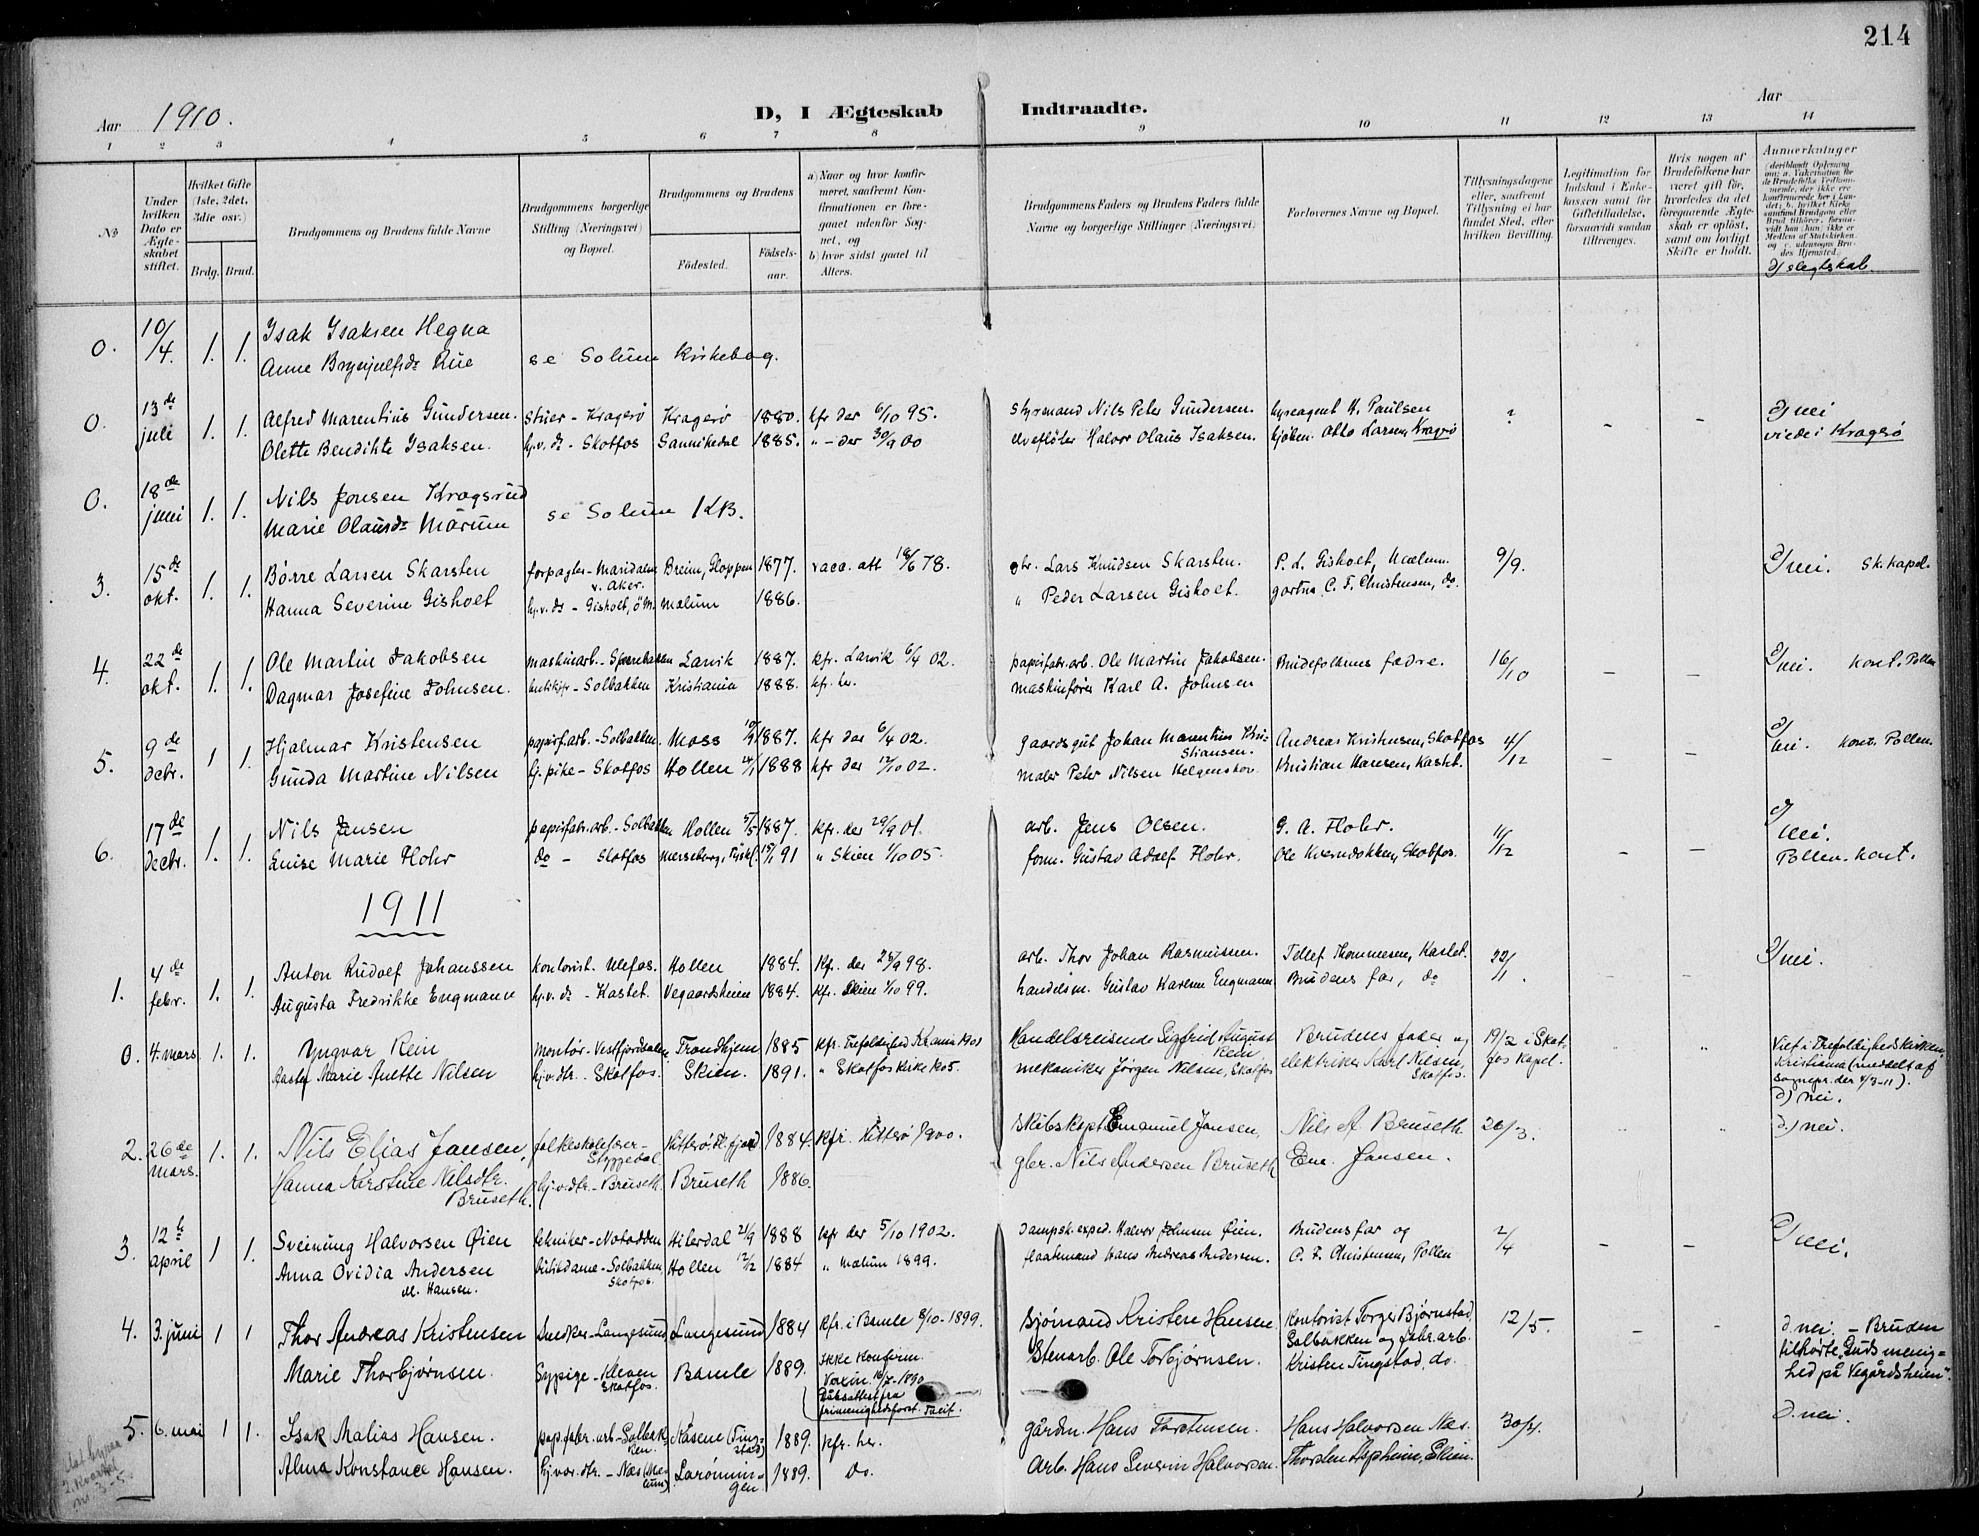 214
Aar 1910.
D, I Ægteskab Indtraadte.
Aar
1 2 3 4 5 6 7 8 9 10 11 12 13 14
No
Under hvilken Dato er Ægteskabet stiftet.
Hvilket Gifte (1ste, 2det, 3die osv.)
Brdg. Brud.
Brudgommens og Brudens fulde Navne
Brudgommens borgerlige Stilling (Næringsvei) og Bopæl.
Brudgommens og Brudens
Fødested. Fødselsaar.
a) Naar og hvor konfirmeret, saafremt Konfirmationen er foregaaet udenfor Sognet, og
b) hvor sidst gaaet til Alters.
Brudgommens Faders og Brudens Faders fulde Navne og borgerlige Stillinger (Næringsvei)
Forlovernes Navne og Bopæl.
Tillysningsdagene eller, saafremt Tillysning ei har fundet Sted, efter hvilken Bevilling.
Legitimation for Indskud i Enkekassen samt for Giftetilladelse, forsaavidt saadan tiltrænges.
Hvis nogen af Brudefolkene har været gift før, hvorledes da det foregaaende Ægteskab er opløst, samt om lovligt Skifte er holdt.
Anmærkninger
d) slegtskab
0. 10/4. 1. 1. Isak Isaksen Hegna
Anne Brynjulfsdr Rue se Solum Kirkebog.
0. 13de juli 1. 1. Alfred Marentius Gundersen. Stuer - Kragerö Kragerö 1880. kfr der 6/10 95. styrmand Nils Peter Gundersen. hyreagent H. Paulsen ? - - d) nei
Olette Bendikte Isaksen. hj.v. dr - Skotfos Sannikedal 1885. " - der 30/9 00 elvefløter Halvor Olaus Isaksen. kjøbm. Otto Larsen, Kragerø viede i Kragerö
0. 18de juni 1. 1. Nils Jonsen Kragsrud
Marie Olausdr Mörum se Solum KB.
3. 15de okt. 1. 1. Børre Larsen Skarsten forpagter - Maridalen v. Aker. Breim, Gloppen 1877. vacc. att 18/6 78. gbr. Lars Knudsen Skarsten. P. L. Gisholt, Mælum. 9/9. d) nei. Sk. kapel.
Hanna Severine Gisholt hj.v. dr - Gisholt, ö M. Mælum 1886. " Peder Larsen Gisholt. gartner C. F. Christensen, do.
4. 22de okt. 1. 1. Ole Martin Jakobsen maskinarb. - Larvik 1887. kfr. Larvik 6/4 02. papirfabr.arb. Ole Martin Jakobsen. Brudefolkenes fædre. 16/10 - - d) nei. kont. Pollen
Dagmar Josefine Johnsen. butikjfr - Solbakken Kristiania 1888. kfr. her. maskinfører Karl A. Johnsen
5. 9de debr. 1 1. Hjalmar Kristensen papirf.arb. - Solbakken. Moss 10/9 1887. kfr der 6/4 02. gaardsgut Johan Marentius Kristiansen. Andreas Kristensen, Skotfos 4/12 - - d) nei. kont. Pollen.
Gunda Martine Nilsen tj. pike - Skotfos Hollen 24/1 1888 kfr der 12/10 02. maler Peter Nilsen Helgenskov. Kristian Hansen, Kastet.
6. 17de decbr. 1. 1. Nils Jensen papirfabr.arb. - Solbakken Hollen 5/5 1887. kfr. der 29/9 01. arb. Jens Olsen. G. A. Flohr. 11/12 - - d) nei.
Luise Marie Flohr do - Skotfos Merseburg, Tyskl. 15/1 91 " Skien 1/10 05. form. Gustav Adolf Flohr. Ole Kverndokken, Skotfos. Pollen. kont.
1911
1. 4de febr. 1. 1. Anton Rudolf Johanssen kontorist. Ulefos. Hollen 1884. kfr. der 25/9 98. arb. Thor Johan Rasmussen. Tellef Thommesen, Kastet. 22/1 - - d) nei.
Augusta Fredrikke Engmann hj.v. dr - Kastet. Vegaardsheien 1884. kfr. Skien 1/10 99. handelsm. Gustav Karlsen Engmann Brudens far, do
0. 4. mars 1. 1. Yngvar Rein Montør - Vestfjorddalen Trondhjem 1885 kfr. Trefoldighed Kr.ania 1901 Handelsreisende Sigfrid August Rein Brudens fader og 19/2 i Skotfos kapel. " " Viet i Trefoldighedskirken, Kristiania (meddelt af sognepr. der 4/3-11).
Marie Anette Nilsen hj.v.dtr. - Skotfos. Skien. 1891. " Skotfos Kirke 1905. mekaniker Jörgen Nilsen, Skotfos elektriker Karl Nilsen, Skotfos. d) nei.
2. 26de mars. 1. 1. Nils Elias Jansen, folkeskolelærer - Styggedal Hitterö, 1884. kfr. Hitterö 1900. Skibskapt. Emanuel Jansen, Nils A Bruseth 26/3. d.) nei.
Hanna Kirstine Nilsdtr. Bruseth. hj.v.dtr. - Bruseth. Bruseth 1886. gbr. Nils Andersen Bruseth Em. Jansen.
3. 12te april 1 1. Sveinung Halvorsen Øien tekniker - Notodden Hiterdal 21/9 1888 kfr der 5/10 1902. Dampsk.exped. Halvor Johnsen Øien. Brudens far og 2/4 - - d) nei.
Anna Ovidia Andersen butikdame - Solbakken, Skotfos. Hollen 12/12 1884 " Mælum 1899. flaatmand Hans Andreas Andersen. C. F. Christensen, Pollen
Hansen.
4. 3. juni 1 1 Thor Andreas Kristensen Snedker - Langesund Langesund 1884 kfr. i Bamle 8/10-1899. Sjømand Kristen Hansen. Kontorist Torger Bjørnstad, Solbakken og fabr.arb. 12/5. - - d. nei. - Bruden tilhörte "Guds menighed på Vegårdsheien".
Marie Thorbjørnsen. Sypige - Kleven Skotfos. Bamle 1889. Ikke konfirm. Vaxin. 16/7-1890 Stenarb. Ole Torbjørnsen. Kristen Tingstad, do.
Dåbsattest fra frimenighedsforst.
5. 6. mai 1 1. Isak Malias Hansen. pap.fabr.arb - Solbakken. Åsene (Tingstad) 1889. kfr. her. gårdm. Hans Torstensen. Hans Halvorsen Næs. 30/4. d. nei.
Alma Konstance Hansen. hj.vær. dtr. - Næs (Mælum) Larönningen 1889. do. Arb. Hans Severin Halvorsen. Thorsten Aspheim, Skien.
2. Kvartal
no. 3-5.